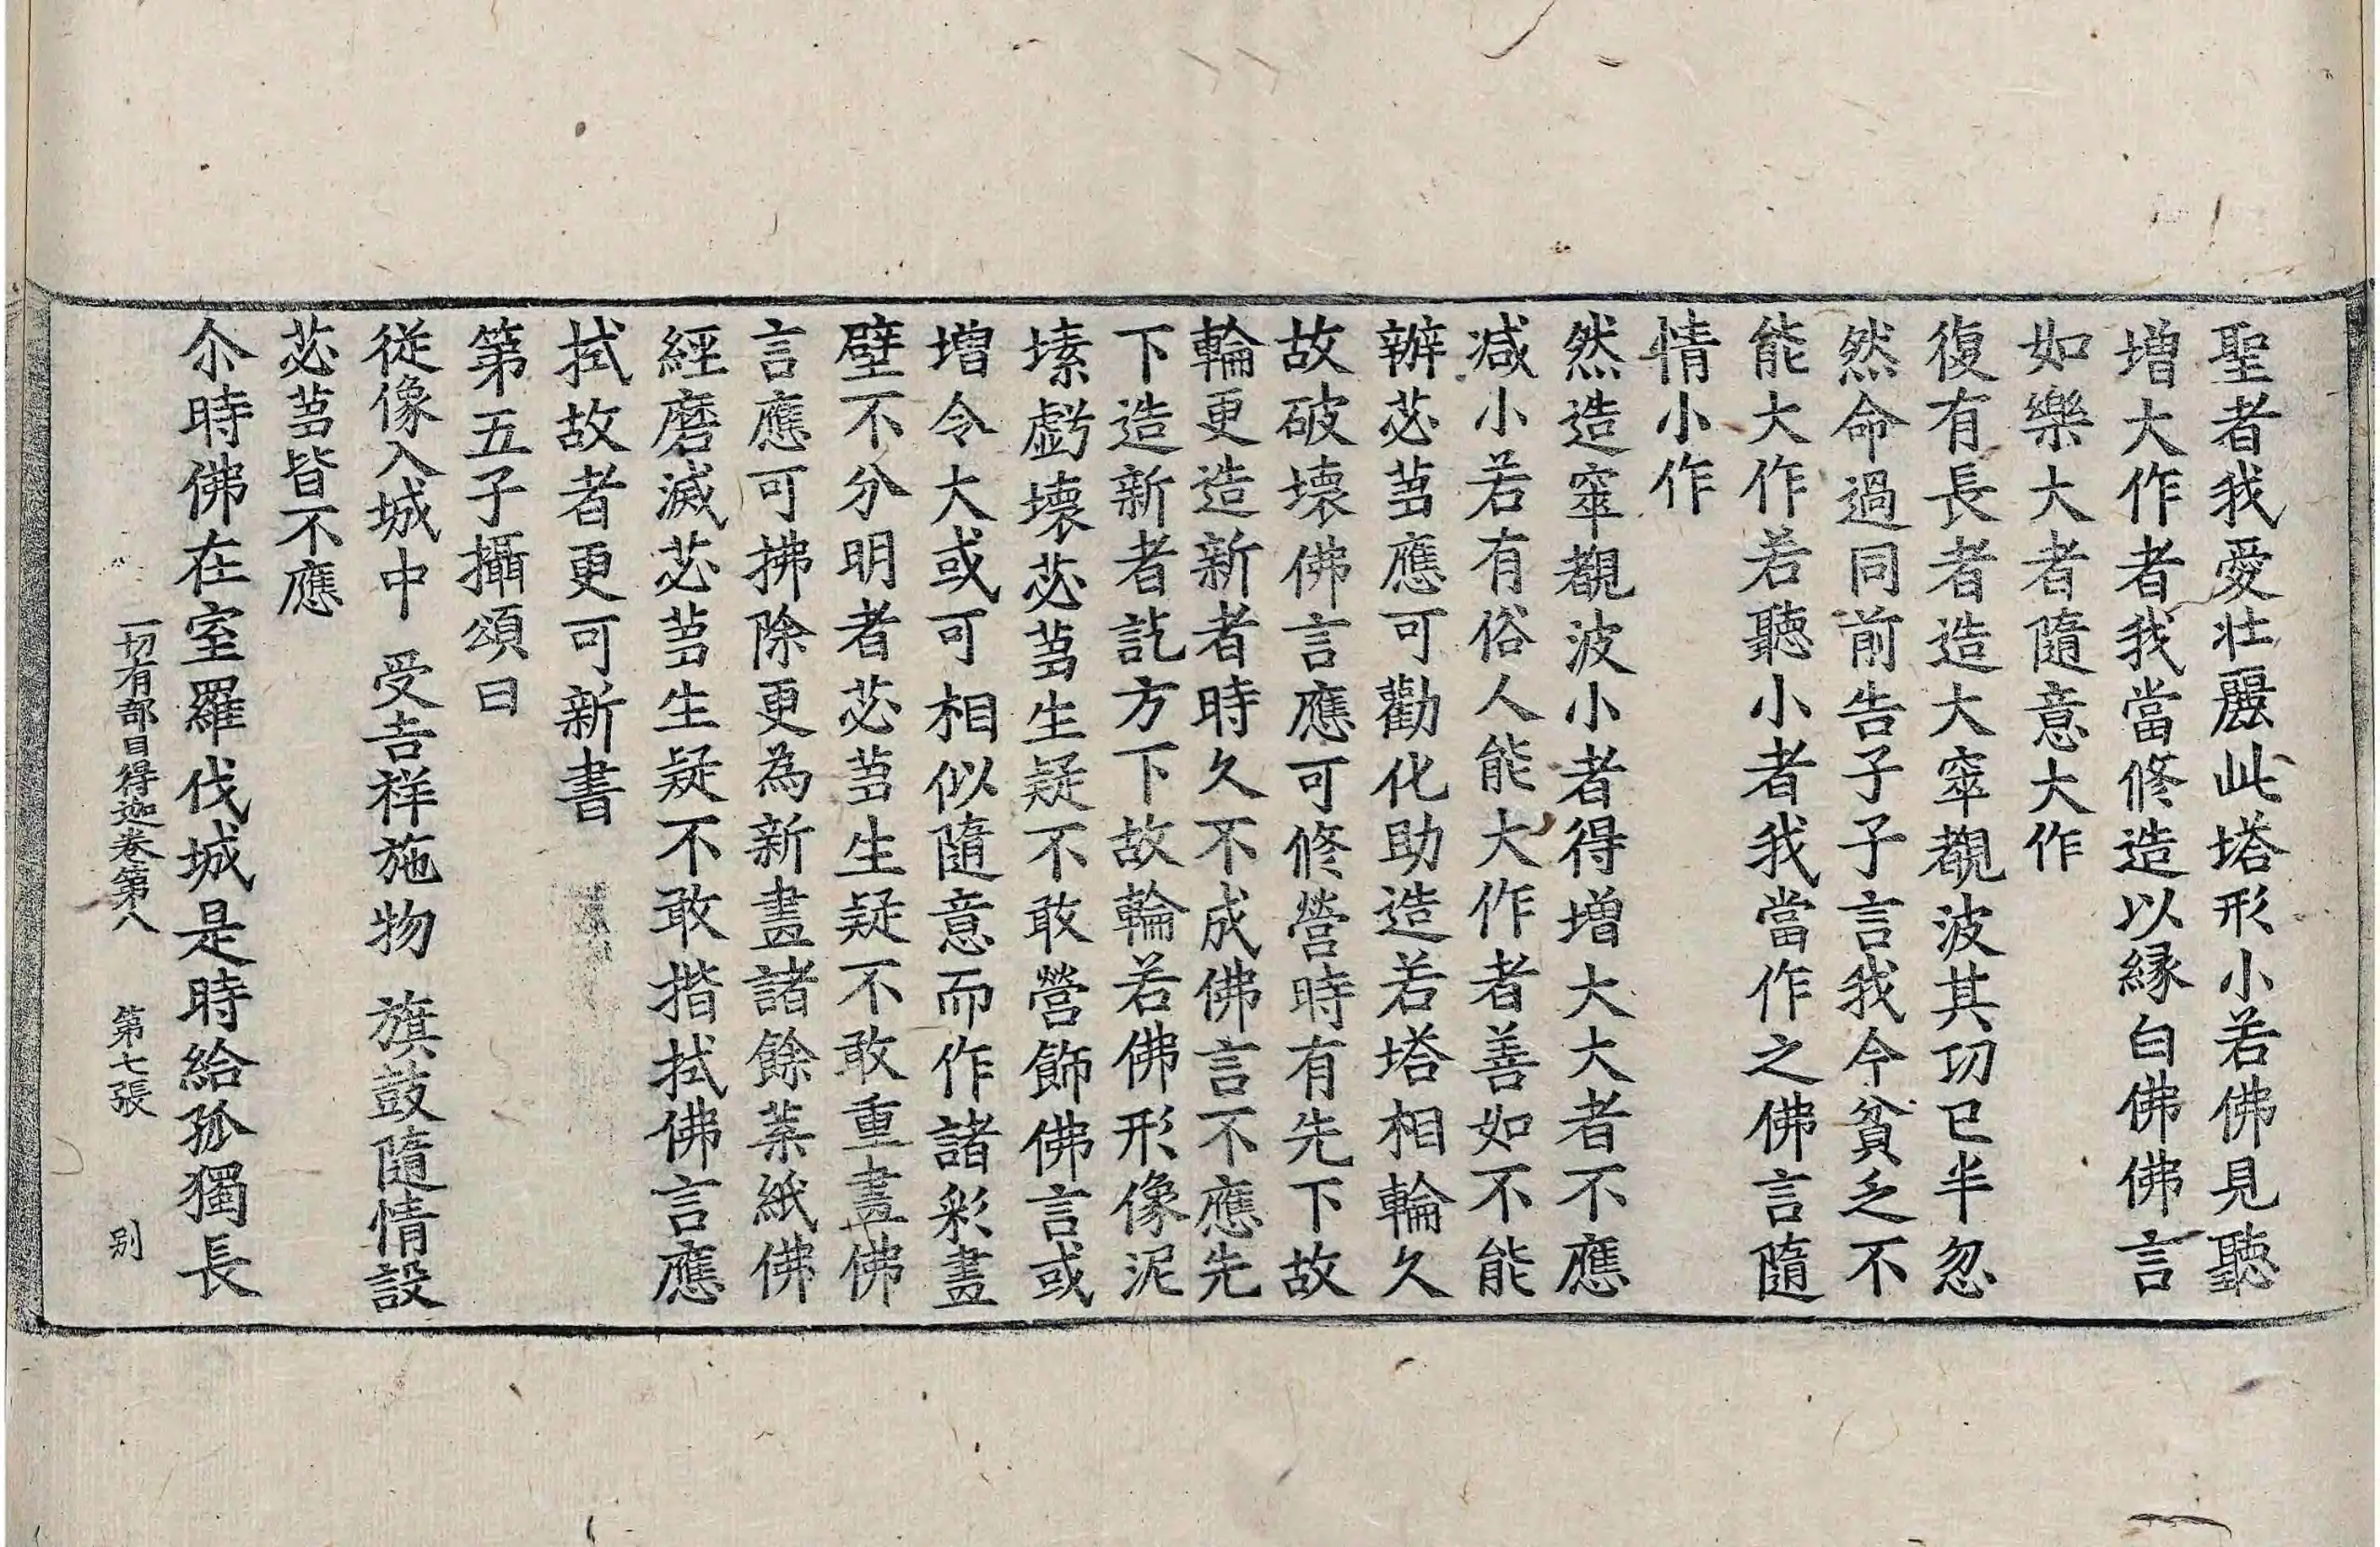 聖者我愛壯麗此塔形小若佛見聽
増大作者我當修造以縁白佛佛言
如樂大者隨意大作
復有長者造大窣覩波其功已半忽
然命過同前告子子言我今貧乏不
能大作若聽小者我當作之佛言隨
情小作
然造窣覩波小者得増大大者不應
减小若有俗人能大作者善如不能
辦苾芻應可勸化助造若塔相輪久
故破壞佛言應可修營時有先下故
輪更造新者時久不成佛言不應先
下造新者訖方下故輪若佛形像泥
塐虧壞苾芻生疑不敢營飾佛言或
増令大或可相似隨意而作諸彩畫
壁不分明者苾芻生疑不敢重畫佛
言應可拂除更為新畫諸餘葉紙佛
經磨滅苾芻生疑不敢揩拭佛言應
拭故者更可新書
第五子攝頌曰
從像入城中 受吉祥施物 旗鼓隨情設
苾芻皆不應
尒時佛在室羅伐城是時給孤獨長
一切有部目得迦卷第八 第七張 别